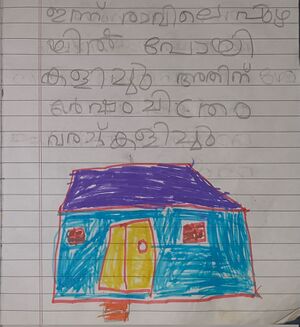 ഇന്ന് രാവിലെ പുഴ
യിൽ പോയി
കളിച്ചു അതിന്
ശേഷം ചിത്രം
വരച്ച് കളിച്ചു